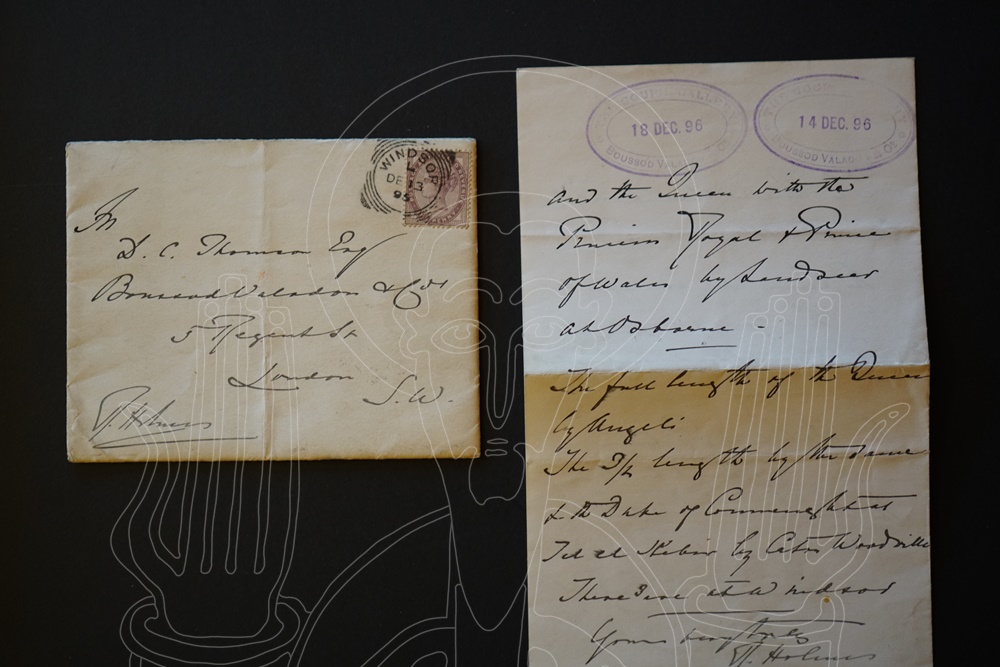 WINDSOR
DE 13
95
D. C. Thomson Esq
Boussod Valadon & Co
5 Regent St
London
S.W.
R. Holmes
18 DEC. 96
BOUSSOD VALADON
14 DEC. 96
BOUSSOD VALADON
and the Queen with the
Princess Royal & Prince
of Wales by Landseer
at Osborne -
The full length of the Queen
by Angeli
The 3/4 length by the same
& the Duke of Connaught at
Tel el Kebir by Caton Woodville
These 3 are at Windsor
Yours very truly
R. Holmes